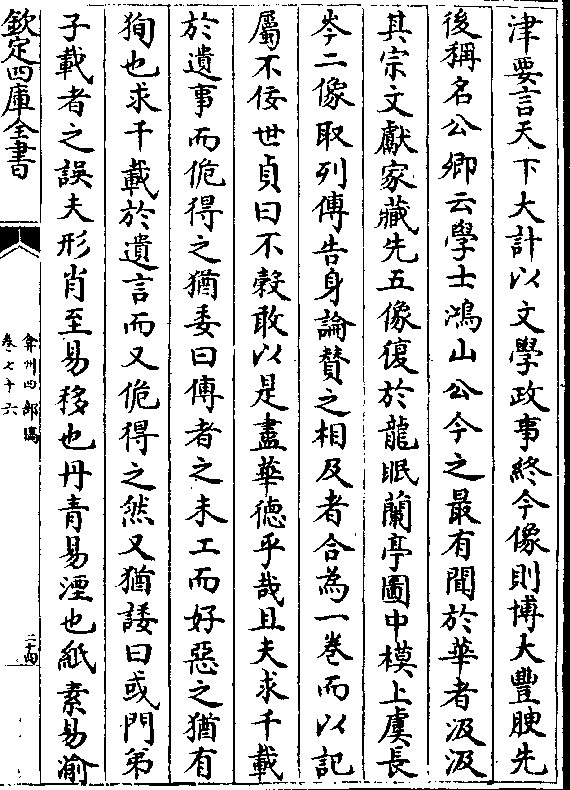 津要言天下大計以文學政事終今像則博大豐腴先
後稱名公卿云學士鴻山公今之最有聞於華者汲汲
其宗文獻家藏先五像復於龍眠蘭亭圖中模上虞長
岑二像取列傳告身論贊之相及者合為一卷而以記
屬不佞世貞曰不穀敢以是盡華德乎哉且夫求千載
於遺事而佹得之猶委曰傳者之未工而好惡之猶有
狥也求千載於遺言而又佹得之然又猶諉曰或門弟
子載者之誤夫形肖至易移也丹青易湮也紙素易渝
欽定四庫全書
弇州四部稿
卷七十六
二十四